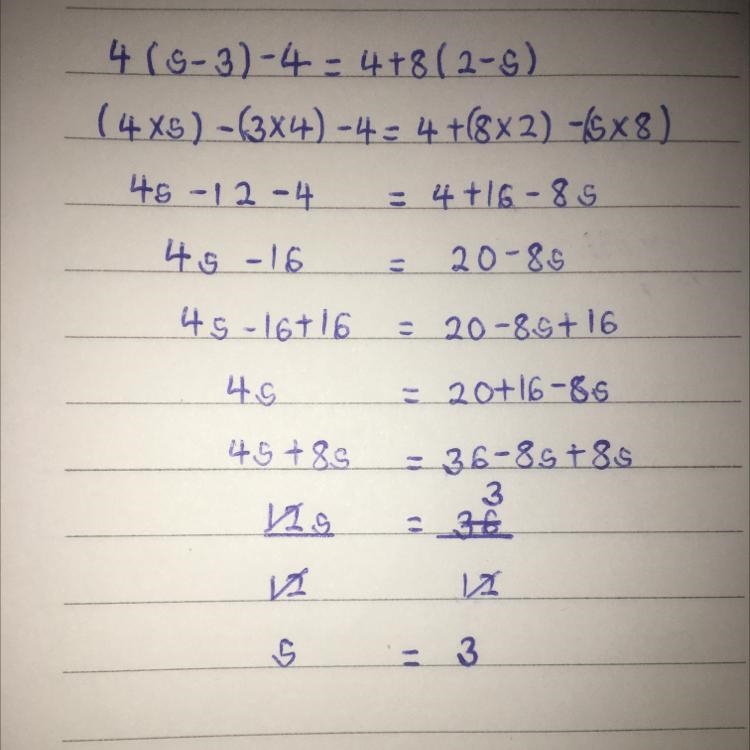 4(s-3)-4 = 4+8(2-s)
(4×s)-(3×4)-4 = 4+(8×2)-(s×8)
4s-12-4 = 4+16-8s
4s-16 = 20-8s
4s-16+16 = 20-8s+16
4s = 20+16-8s
4s+8s = 36-8s+8s
3
12s = 36
12 12
s = 3